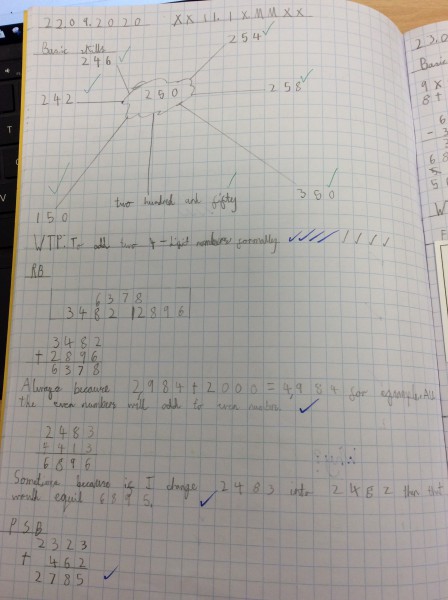 22.09.2020 XXII.IX.MMXX
Basic skills
246
254
242
250
258
150
two hundred and fifty
350
WTP. To add two 4-digit numbers formally
RB
6378
3482 2896
3482
+ 2896
6378
Always because 2,984 + 2000 = 4,984 for example. All
the even numbers will add to even number.
2483
4413
6896
Sometimes because if I change 2483 into 2482 then that
would equil 6895.
PSB
2323
+ 462
2785
23.0
Basic
9 x
8 +